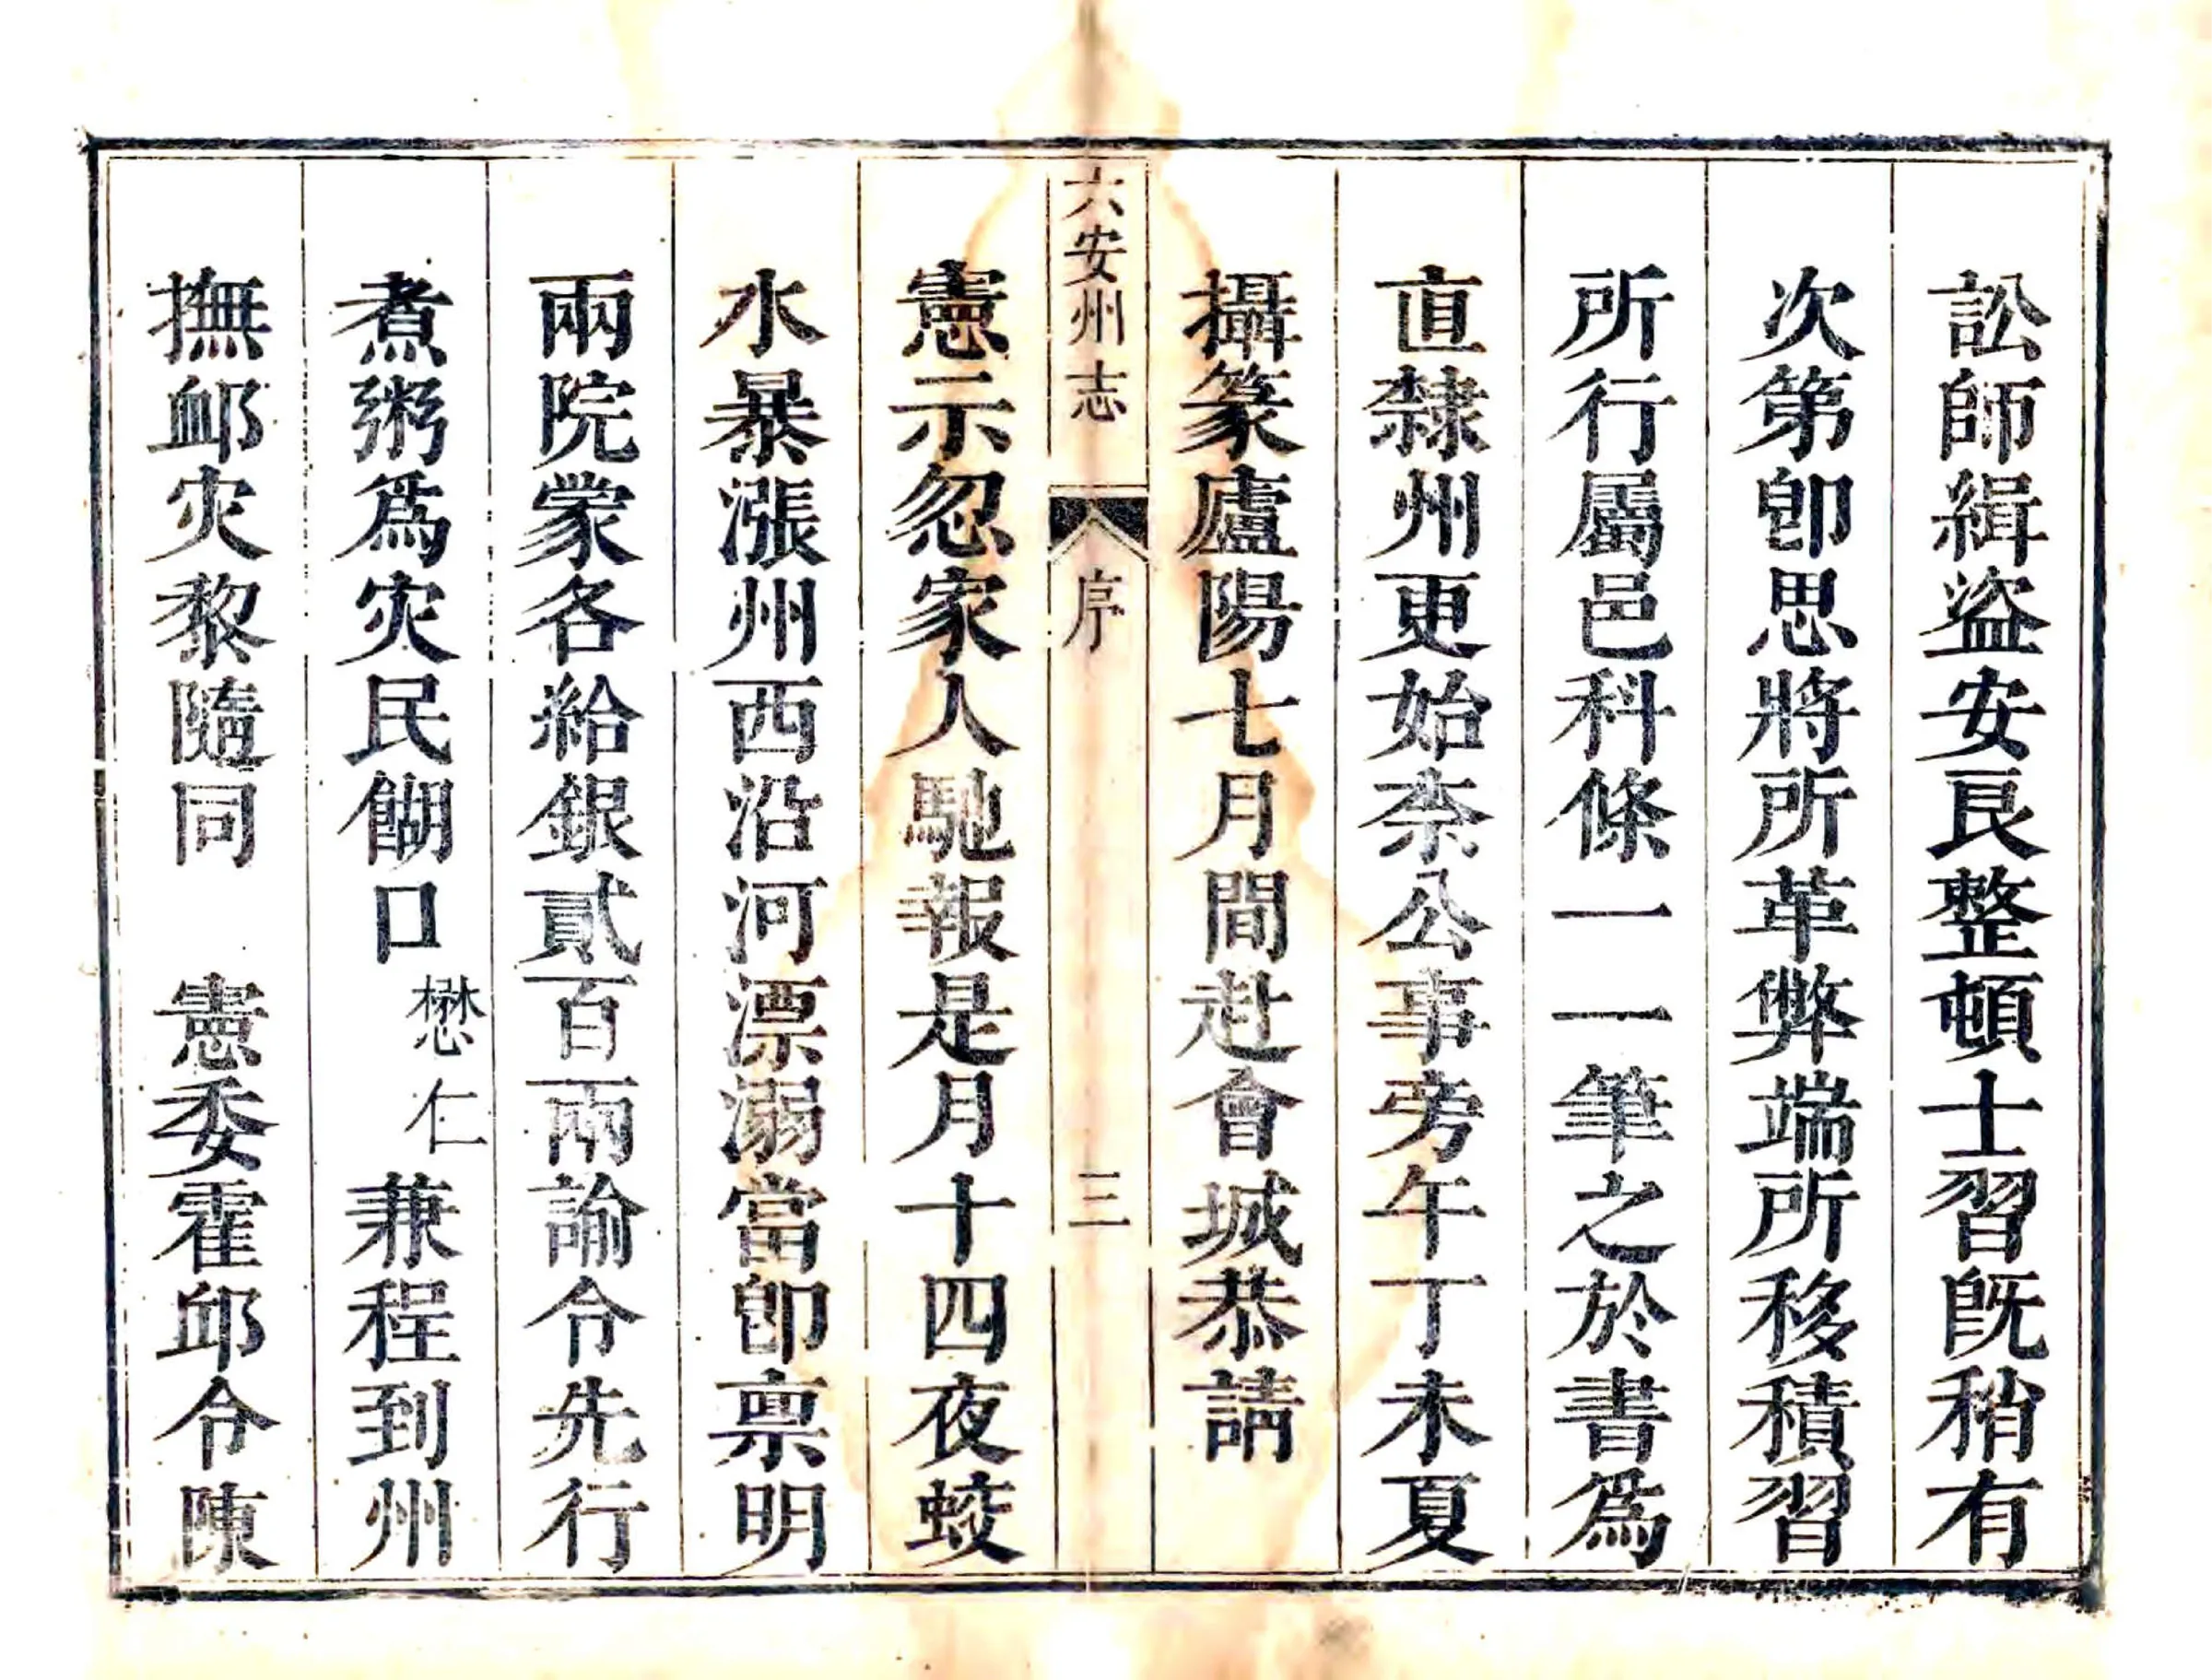 訟師緝盜安良整頓士習既稍有
次第卽思將所革弊端所移積習
所行屬邑科條一一筆之於書爲
直隸州更始柰公事旁午丁未夏
攝篆廬陽七月間赴會城恭請
六安州志 序 三
憲示忽家人馳報是月十四夜蛟
水暴漲州西沿河漂溺當卽禀明
兩院蒙各給銀貳百兩諭令先行
煮粥爲灾民餬口懋仁兼程到州
撫卹灾黎隨同 憲委霍邱令陳